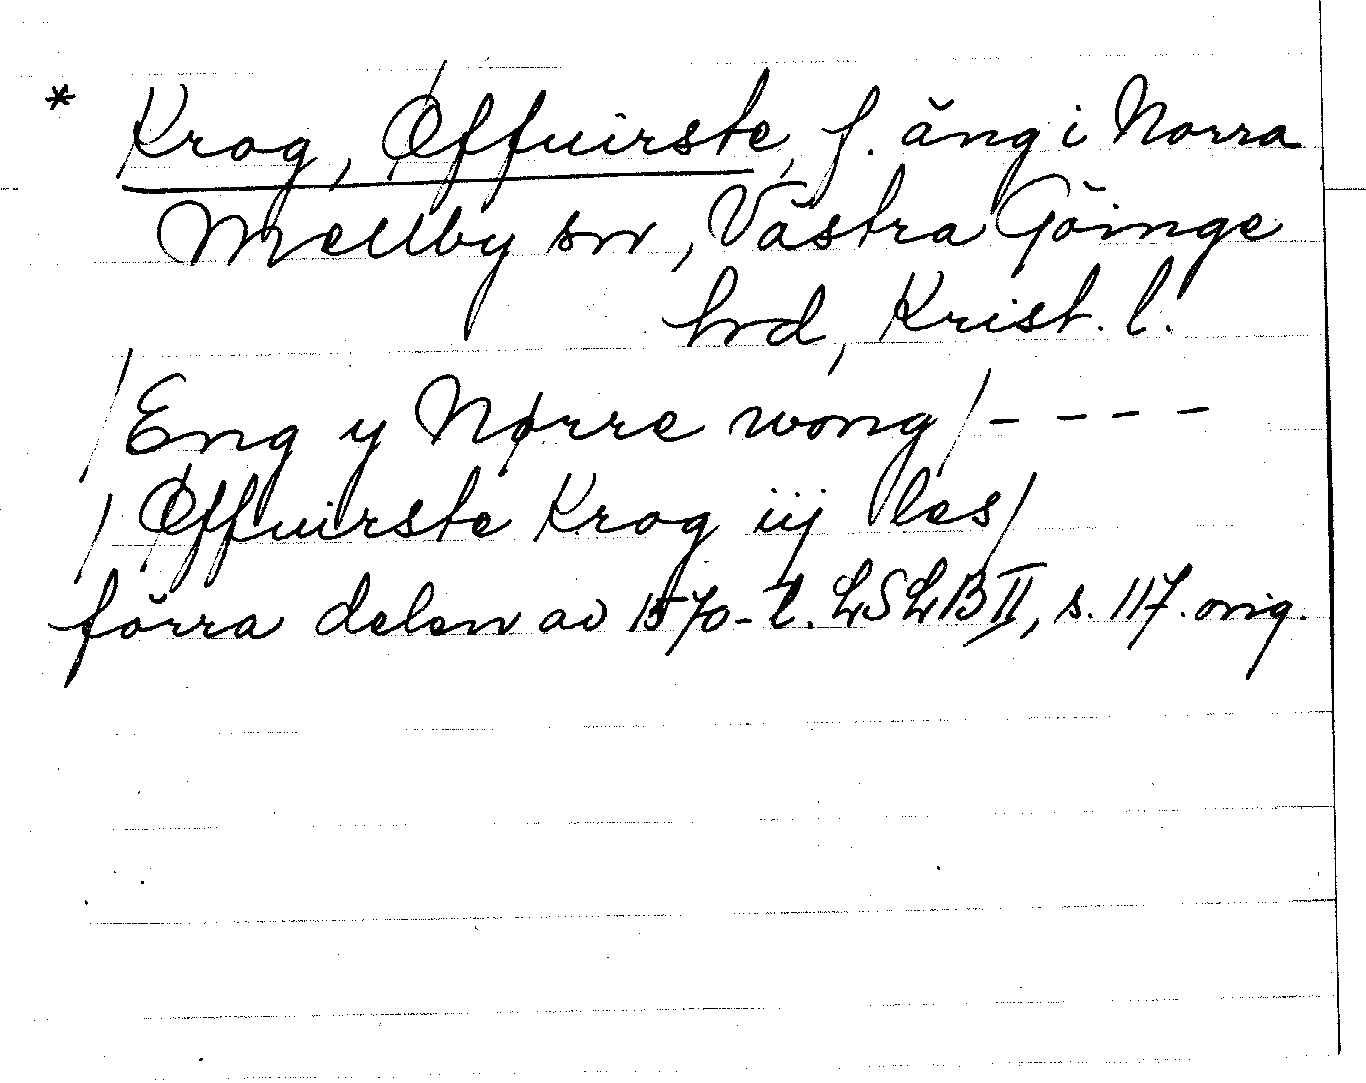 * Krog, Øffuirste, f. äng i Norra
Mellby sn, Västra Göinge
hrd, Krist. l.
/Eng y Nørre wong/ - - - -
/Øffuirste Krog iij les/
förra delen av 1570-t. LSLB II, s. 117. orig.